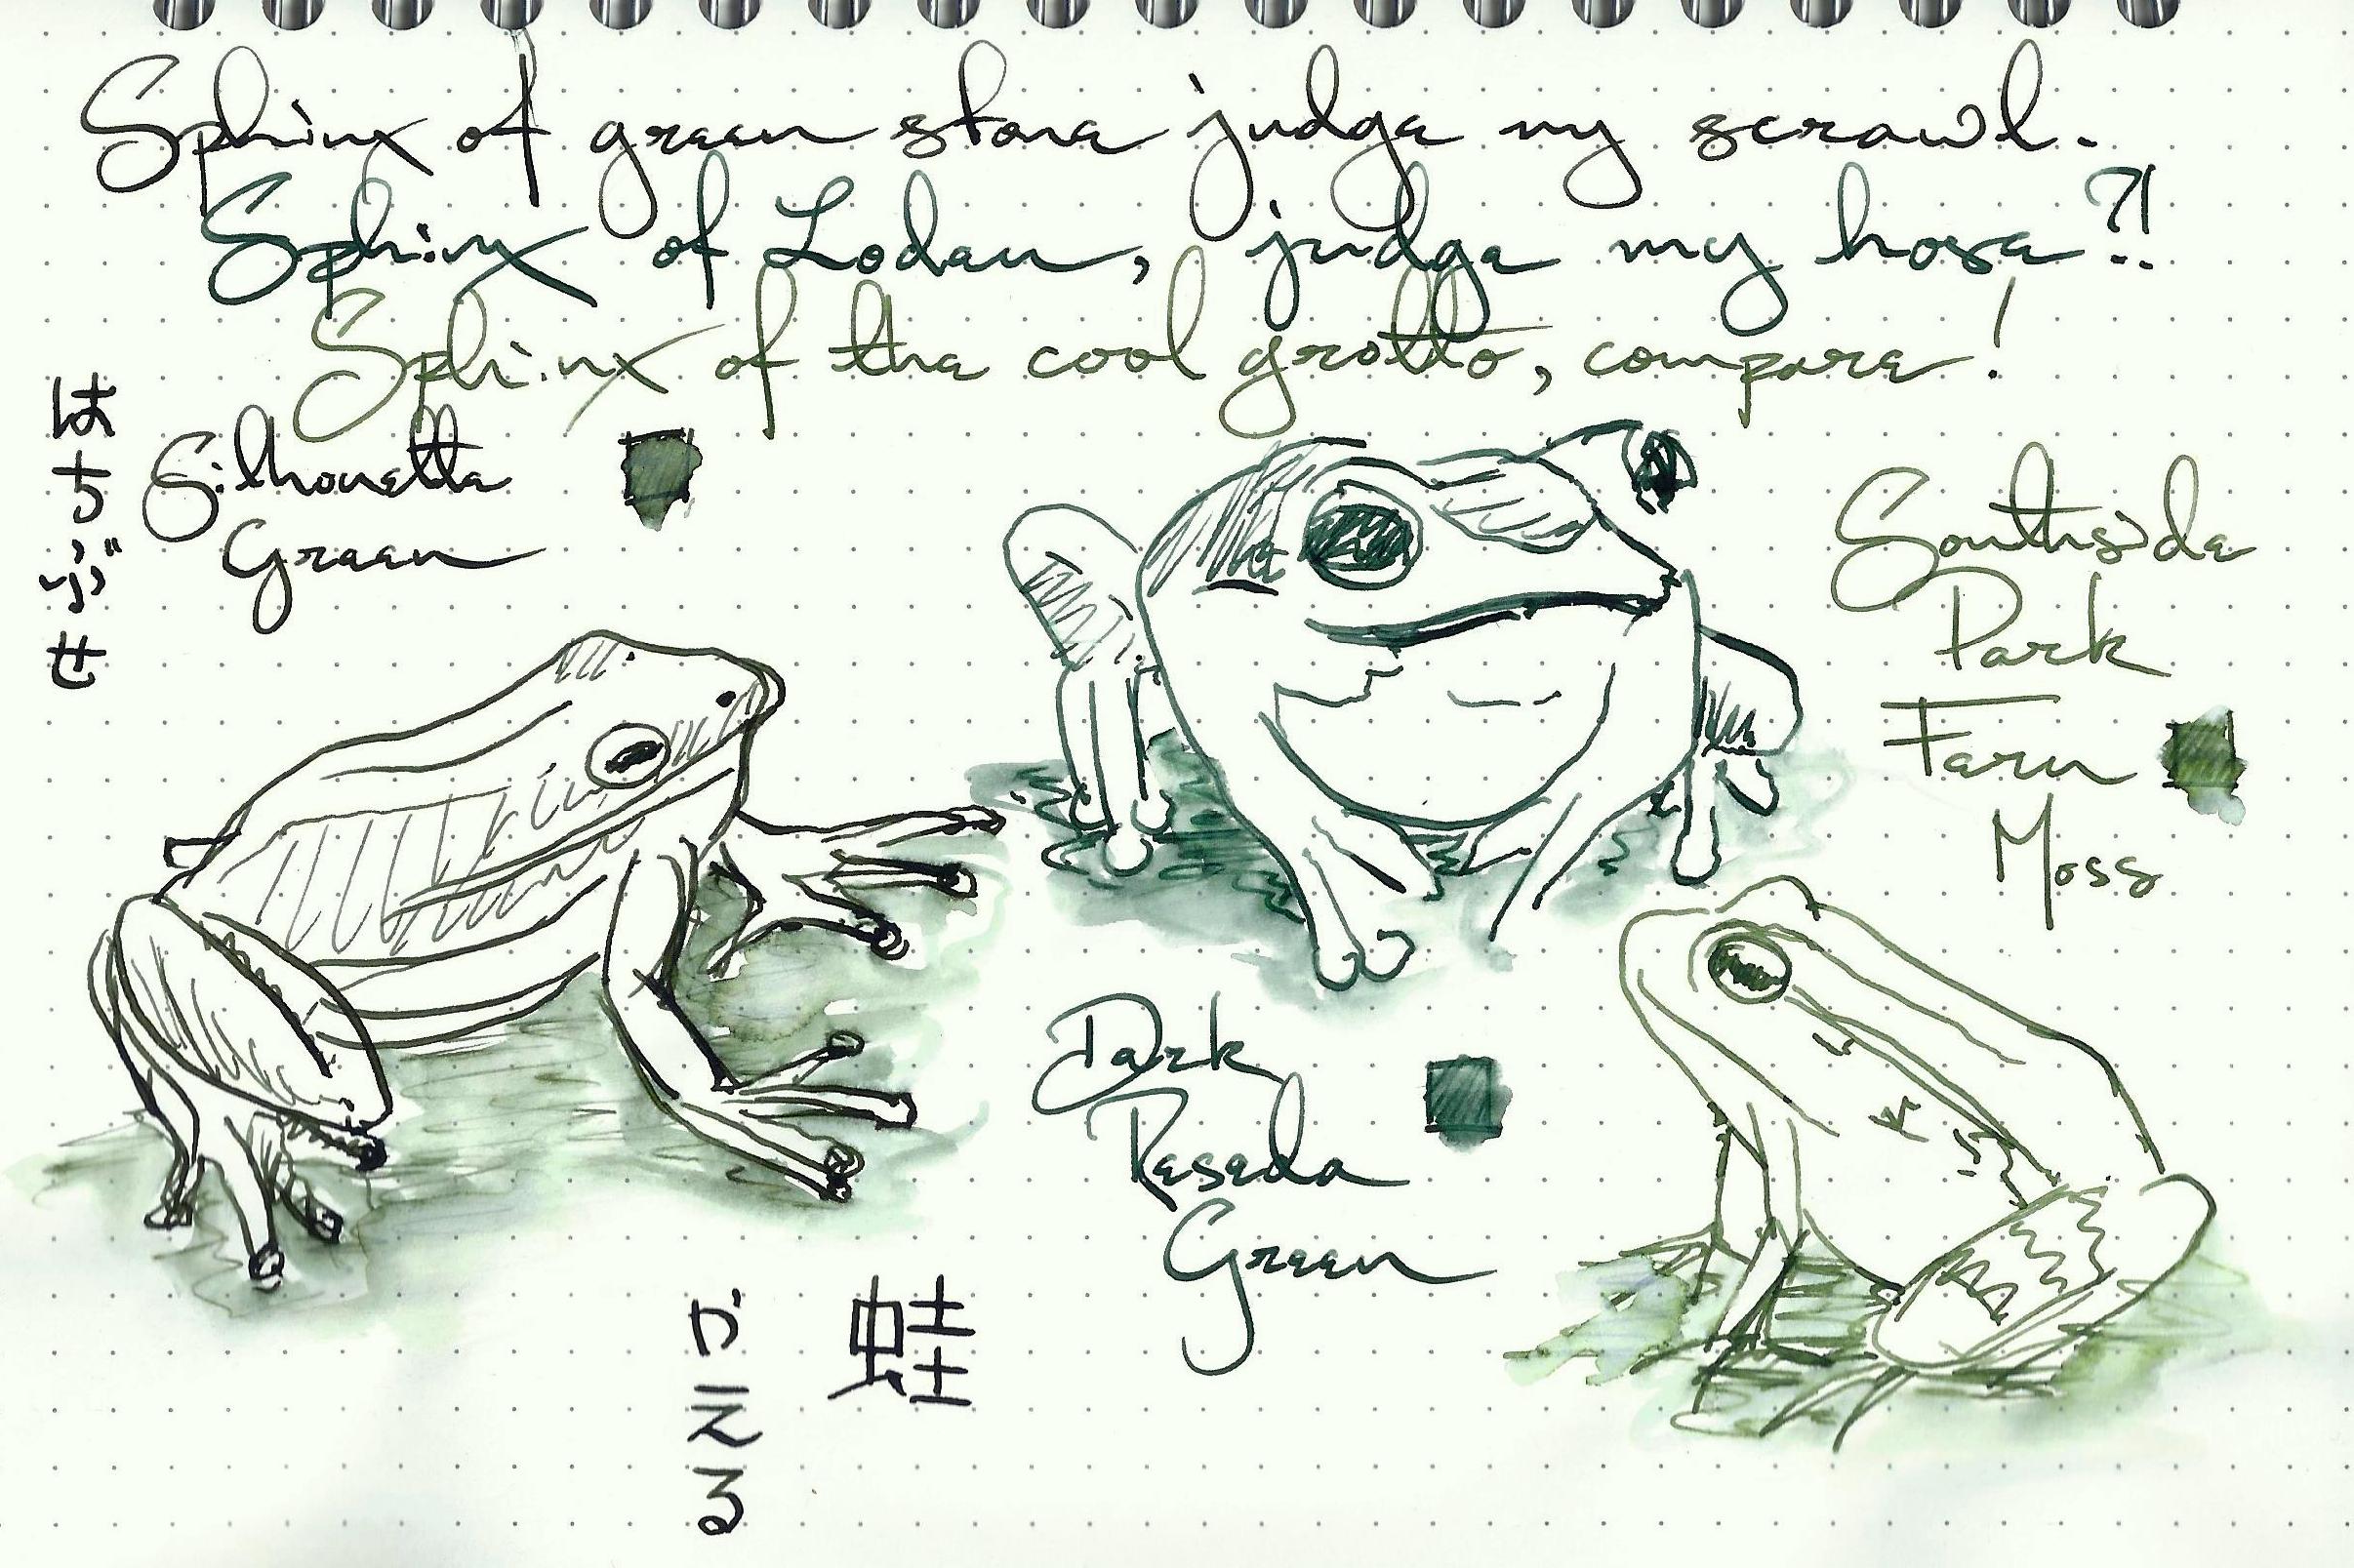 Sphinx of green stone judge my scrawl.
Sphinx of Loden, judge my hose?!
Sphinx of the cool grotto, compare!
はちぶせ
Silhouette
Green
Southside
Park
Fern
Moss
Dark
Reseda
Green
蛙
かえる